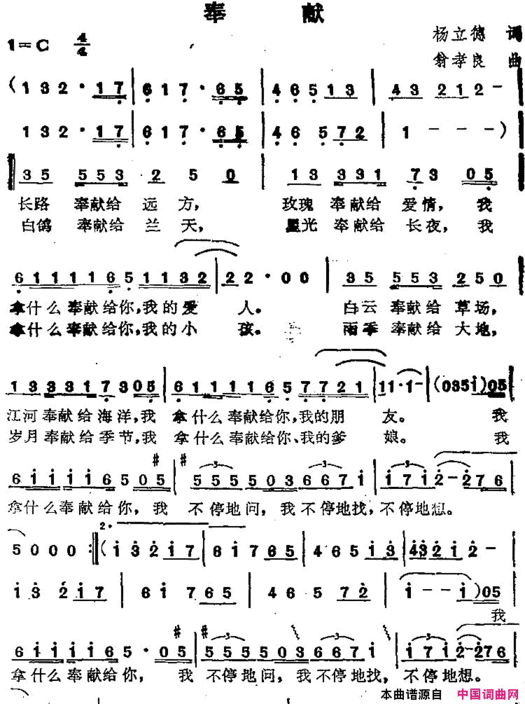 奉 献
1=C 4/4
杨立德 词
翁孝良 曲
(132·17 | 617·65 | 46513 | 43 212- |
132·17 | 617·65 | 46 572 | 1 - - - )
35 553 2 5 0 | 13 3331 73 05 |
长路 奉献给 远方, 玫瑰 奉献给 爱情, 我
白鸽 奉献给 兰天, 星光 奉献给 长夜, 我
6111165 1132 | 22·00 | 35 553 250 |
拿什么奉献给你,我的爱 人。 白云 奉献给 草场,
拿什么奉献给你,我的小 孩。 雨季 奉献给 大地,
13 3317305 | 61111657721 | 11·1- | (0351)05
江河奉献给海洋,我 拿什么奉献给你,我的朋 友。 我
岁月奉献给季节,我 拿什么奉献给你、我的爹 娘。 我
6111165 505 | 555503667i | i7i2-276
拿什么奉献给你, 我 不停地问, 我不停地找, 不停地想。
5 0 0 0 :‖ 2· (13217 | 61765 | 46513 | 43212-
13 217 | 61765 | 465 72 | 1 - - 1)05
我
6111165·05 | 555503667i | i7i2-276
拿什么奉献给你, 我 不停地问, 我不停地找, 不停地想。
本曲谱源自 中国词曲网